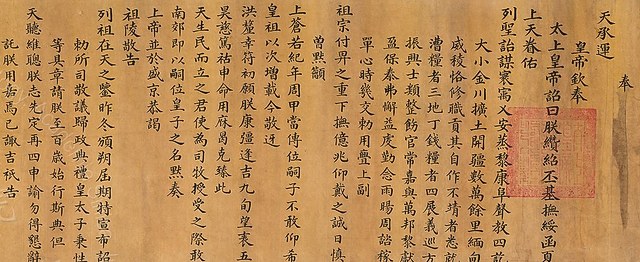 奉
天承運
皇帝欽奉
太上皇帝詔曰朕纘紹丕基撫綏函夏
上天眷佑
列聖詒謀寰寓乂安蒸黎康阜聲教四
大小金川擴土開疆數萬餘里緬甸
威稜恪修職貢其自作不靖者悉就
漕糧者三地丁錢糧者四展義巡方
振興士類整飭官常嘉與萬邦黎獻
盈保泰弗懈益虔勤念雨暘周諮稼
單心時幾交勅用舋上副
祖宗付畀之重下撫億兆仰戴之誠日慎
曾默籲
上蒼若紀年周甲當傳位嗣子不敢仰希
皇祖以次增載今敬迓
洪釐幸符初願朕康彊逢吉九旬望衷五
昊慈篤祜申命用庥曷克臻此
天生民而立之君使為司牧授受之際敢
南郊即以嗣位皇子之名默奏
上帝並於盛京恭謁
祖陵敬告
列祖在天之鑒昨冬頒朔屆期特宣布詔
勅所司敬議歸政典禮皇太子秉性
等具章請朕至百歲始行斯典但
天聽維聰朕志先定再四申諭勿得懇辭
託朕用嘉焉已諏吉祇告